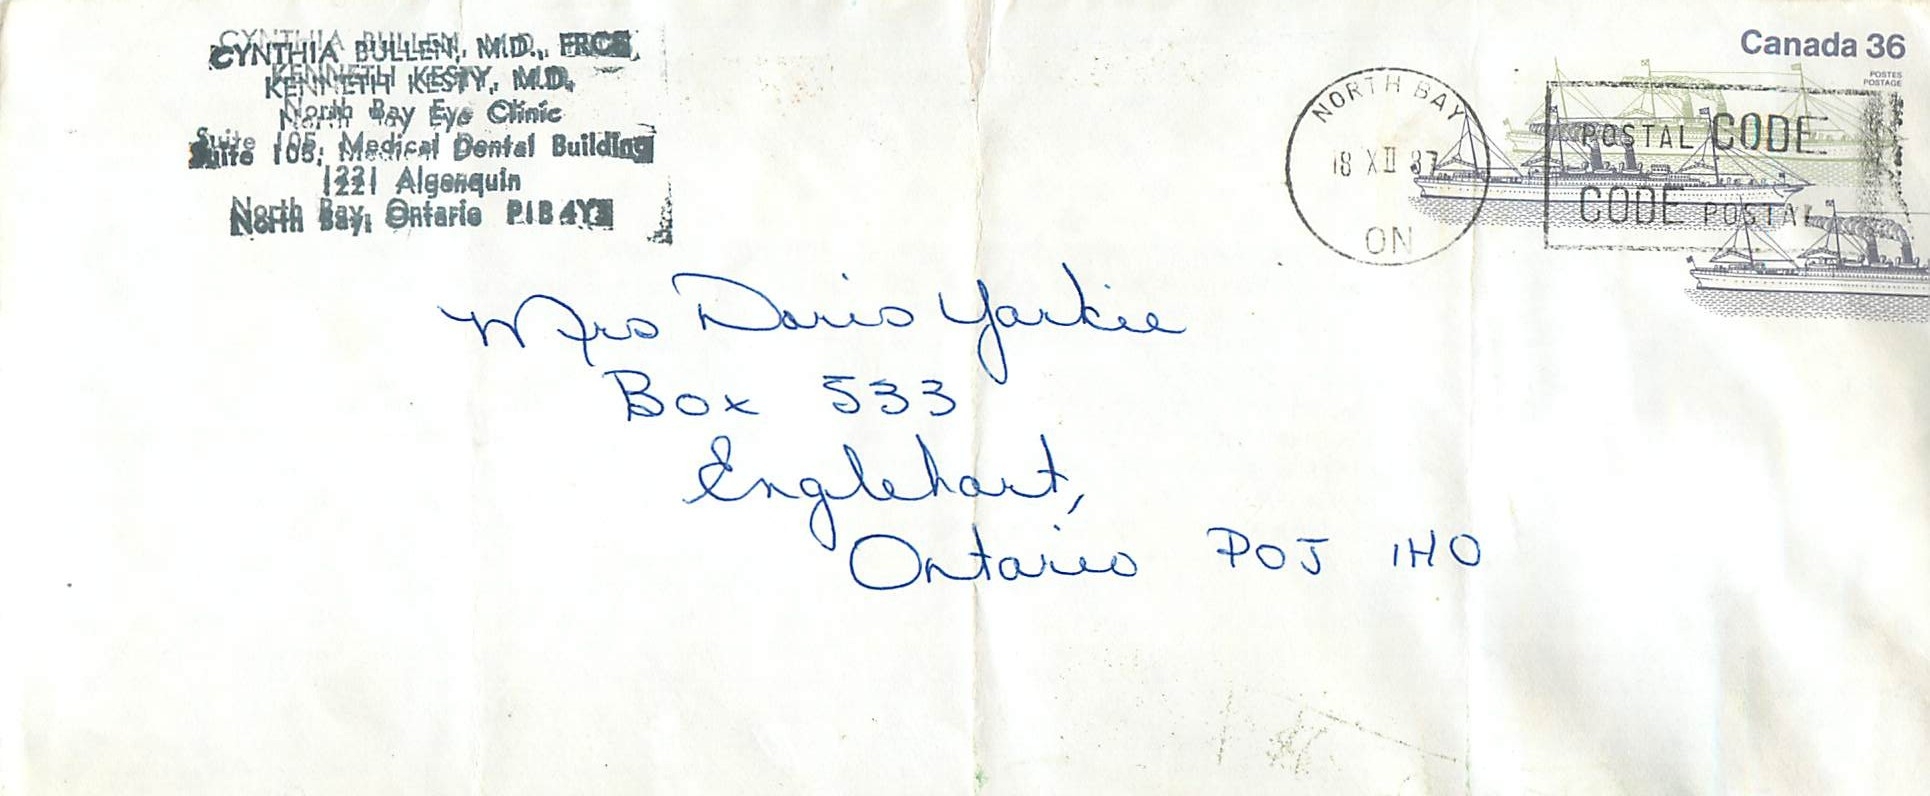 CYNTHIA BULLEN, M.D., FRCS,
KENNETH KESTY, M.D.
North Bay Eye Clinic
Suite 105, Medical Dental Building
1221 Algonquin
North Bay, Ontario P1B 4Y3
Canada 36
POSTES
POSTAGE
NORTH BAY
18 XII 87
ON
POSTAL CODE
CODE POSTAL
Mrs Doris Yorkie
Box 533
Englehart,
Ontario P0J 1H0